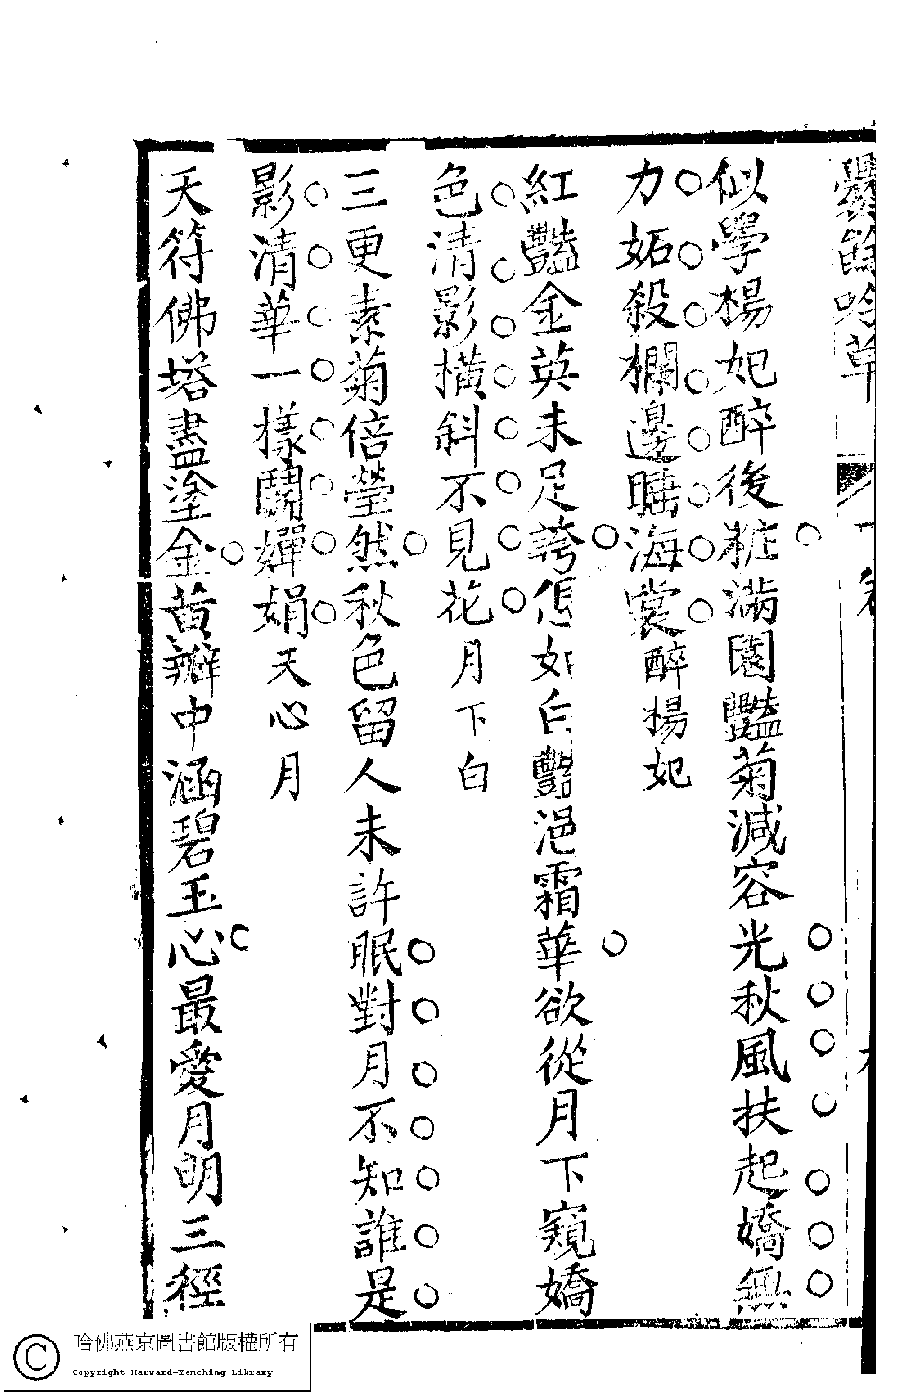 爨餘吟草
一卷
似學楊妃醉後粧滿園豔菊減容光秋風扶起嬌無
力妬殺欄邊睡海棠醉楊妃
紅豔金英未足誇怎如白豔浥霜華欲從月下窺嬌
色清影橫斜不見花月下白
三更素菊倍瑩然秋色留人未許眠對月不知誰是
影清華一樣鬪嬋娟天心月
天符佛塔盡塗金黃瓣中涵碧玉心最愛月明三徑
哈佛燕京圖書館版權所有
Copyright Harvard-Yenching Library